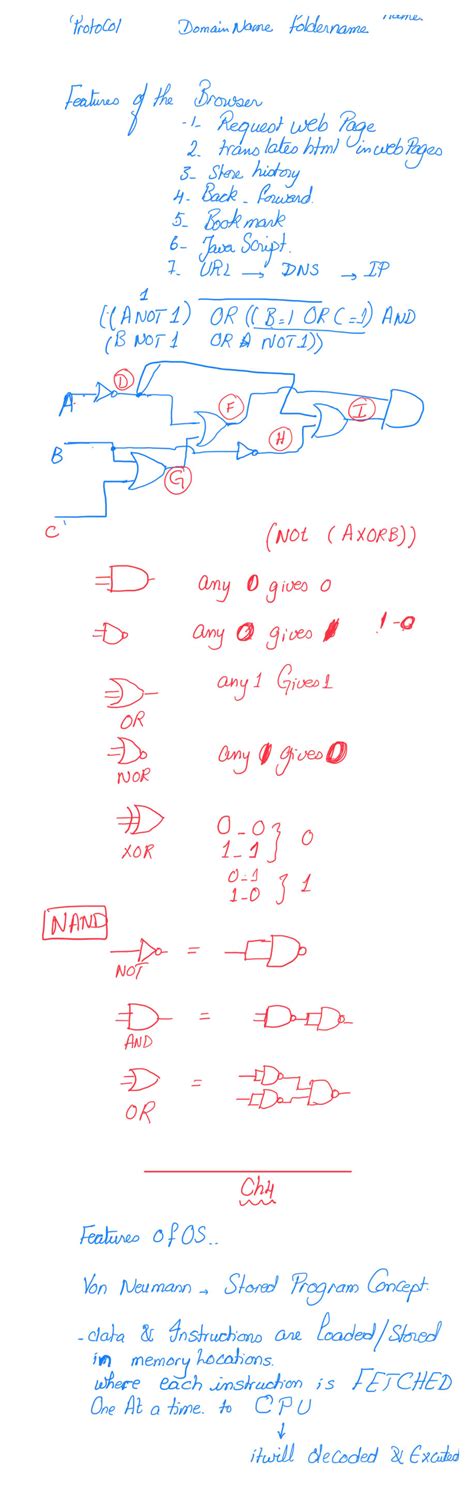 Protocol Domain Name Foldername name
Features of the Browser
-1- Request web Page
2- translates html in web Pages
3- Store history
4- Back - forward.
5- Bookmark
6- Java Script.
7- URL → DNS → IP
1
((A NOT 1) OR ((B=1 OR C=1) AND
(B NOT 1 OR A NOT 1))
A D F I
B H
G
C
(NOt (A XOR B))
any 0 gives 0
any 0 gives 1 1-0
any 1 Gives 1
OR
any 1 gives 0
NOR
XOR 0_0 } 0
1_1
0_1 } 1
1-0
NAND
NOT =
AND =
OR =
Ch4
Features Of OS..
Von Neumann → Stored Program Concept.
- data & Instructions are Loaded/Stored
in memory Locations.
where each instruction is FETCHED
One At a time. to CPU
↓
it will decoded & Excuted